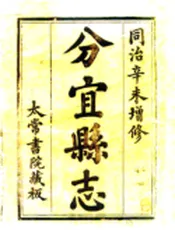 同治辛未增修
分宜縣志
太常書院藏板